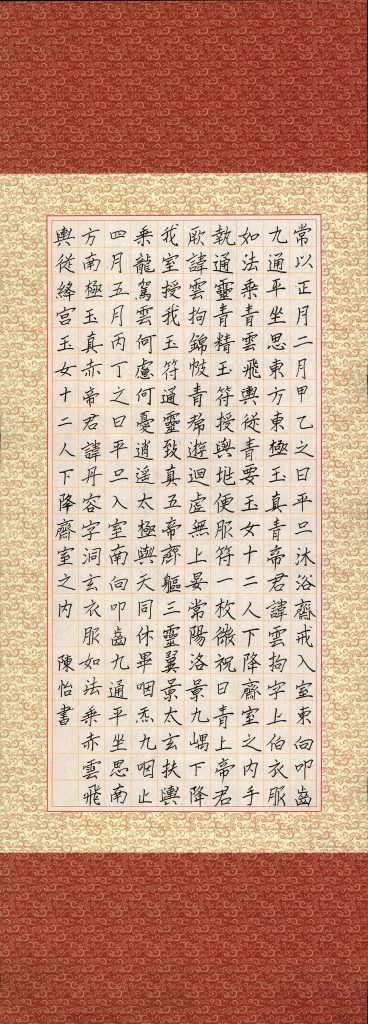 常以正月二月甲乙之日平旦沐浴齋戒入室東向叩齒
九通平坐思東方東極玉真青帝君諱雲拘字上伯衣服
如法乘青雲飛輿從青要玉女十二人下降齋室之内手
執通靈青精玉符授與地便服符一枚微祝曰青上帝君
厥諱雲拘錦帔青裙遊迴虛無上晏常陽洛景九嵎下降
我室授我玉符通靈致真五帝齊軀三靈翼景太玄扶輿
乘龍駕雲何慮何憂逍遥太極與天同休畢咽炁九咽止
四月五月丙丁之日平旦入室南向叩齒九通平坐思南
方南極玉真赤帝君諱丹容字洞玄衣服如法乘赤雲飛
輿從絳宫玉女十二人下降齋室之内 陳怡書